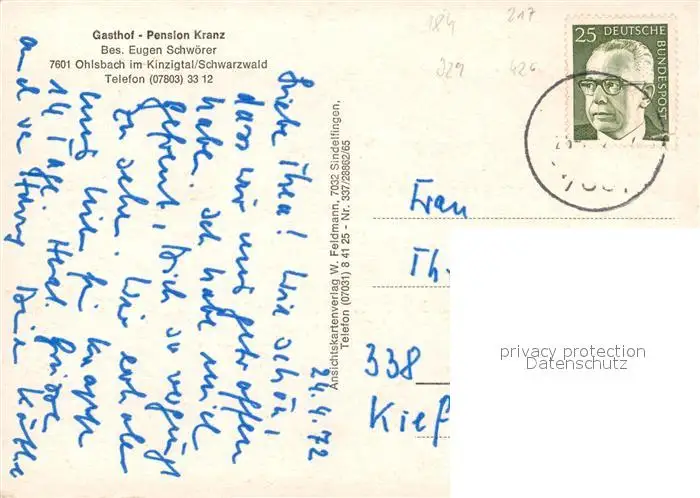 Gasthof - Pension Kranz
Bes. Eugen Schwörer
7601 Ohlsbach im Kinzigtal/Schwarzwald
Telefon (07803) 33 12
24.4.72
Liebe Thea! Wie schön,
dass wir uns getroffen
haben. Ich habe mich
gefreut, Dich so vergnügt
zu sehen. Wir erholen
uns hier für knapp
14 Tage. Herzl. Grüße
Deine Käthe
Ansichtskartenverlag W. Feldmann, 7032 Sindelfingen,
Telefon (07031) 8 41 25 - Nr. 337/28862/65
184 217
329 426
25 DEUTSCHE
BUNDESPOST
Frau
Th.
338
Kief
privacy protection
Datenschutz